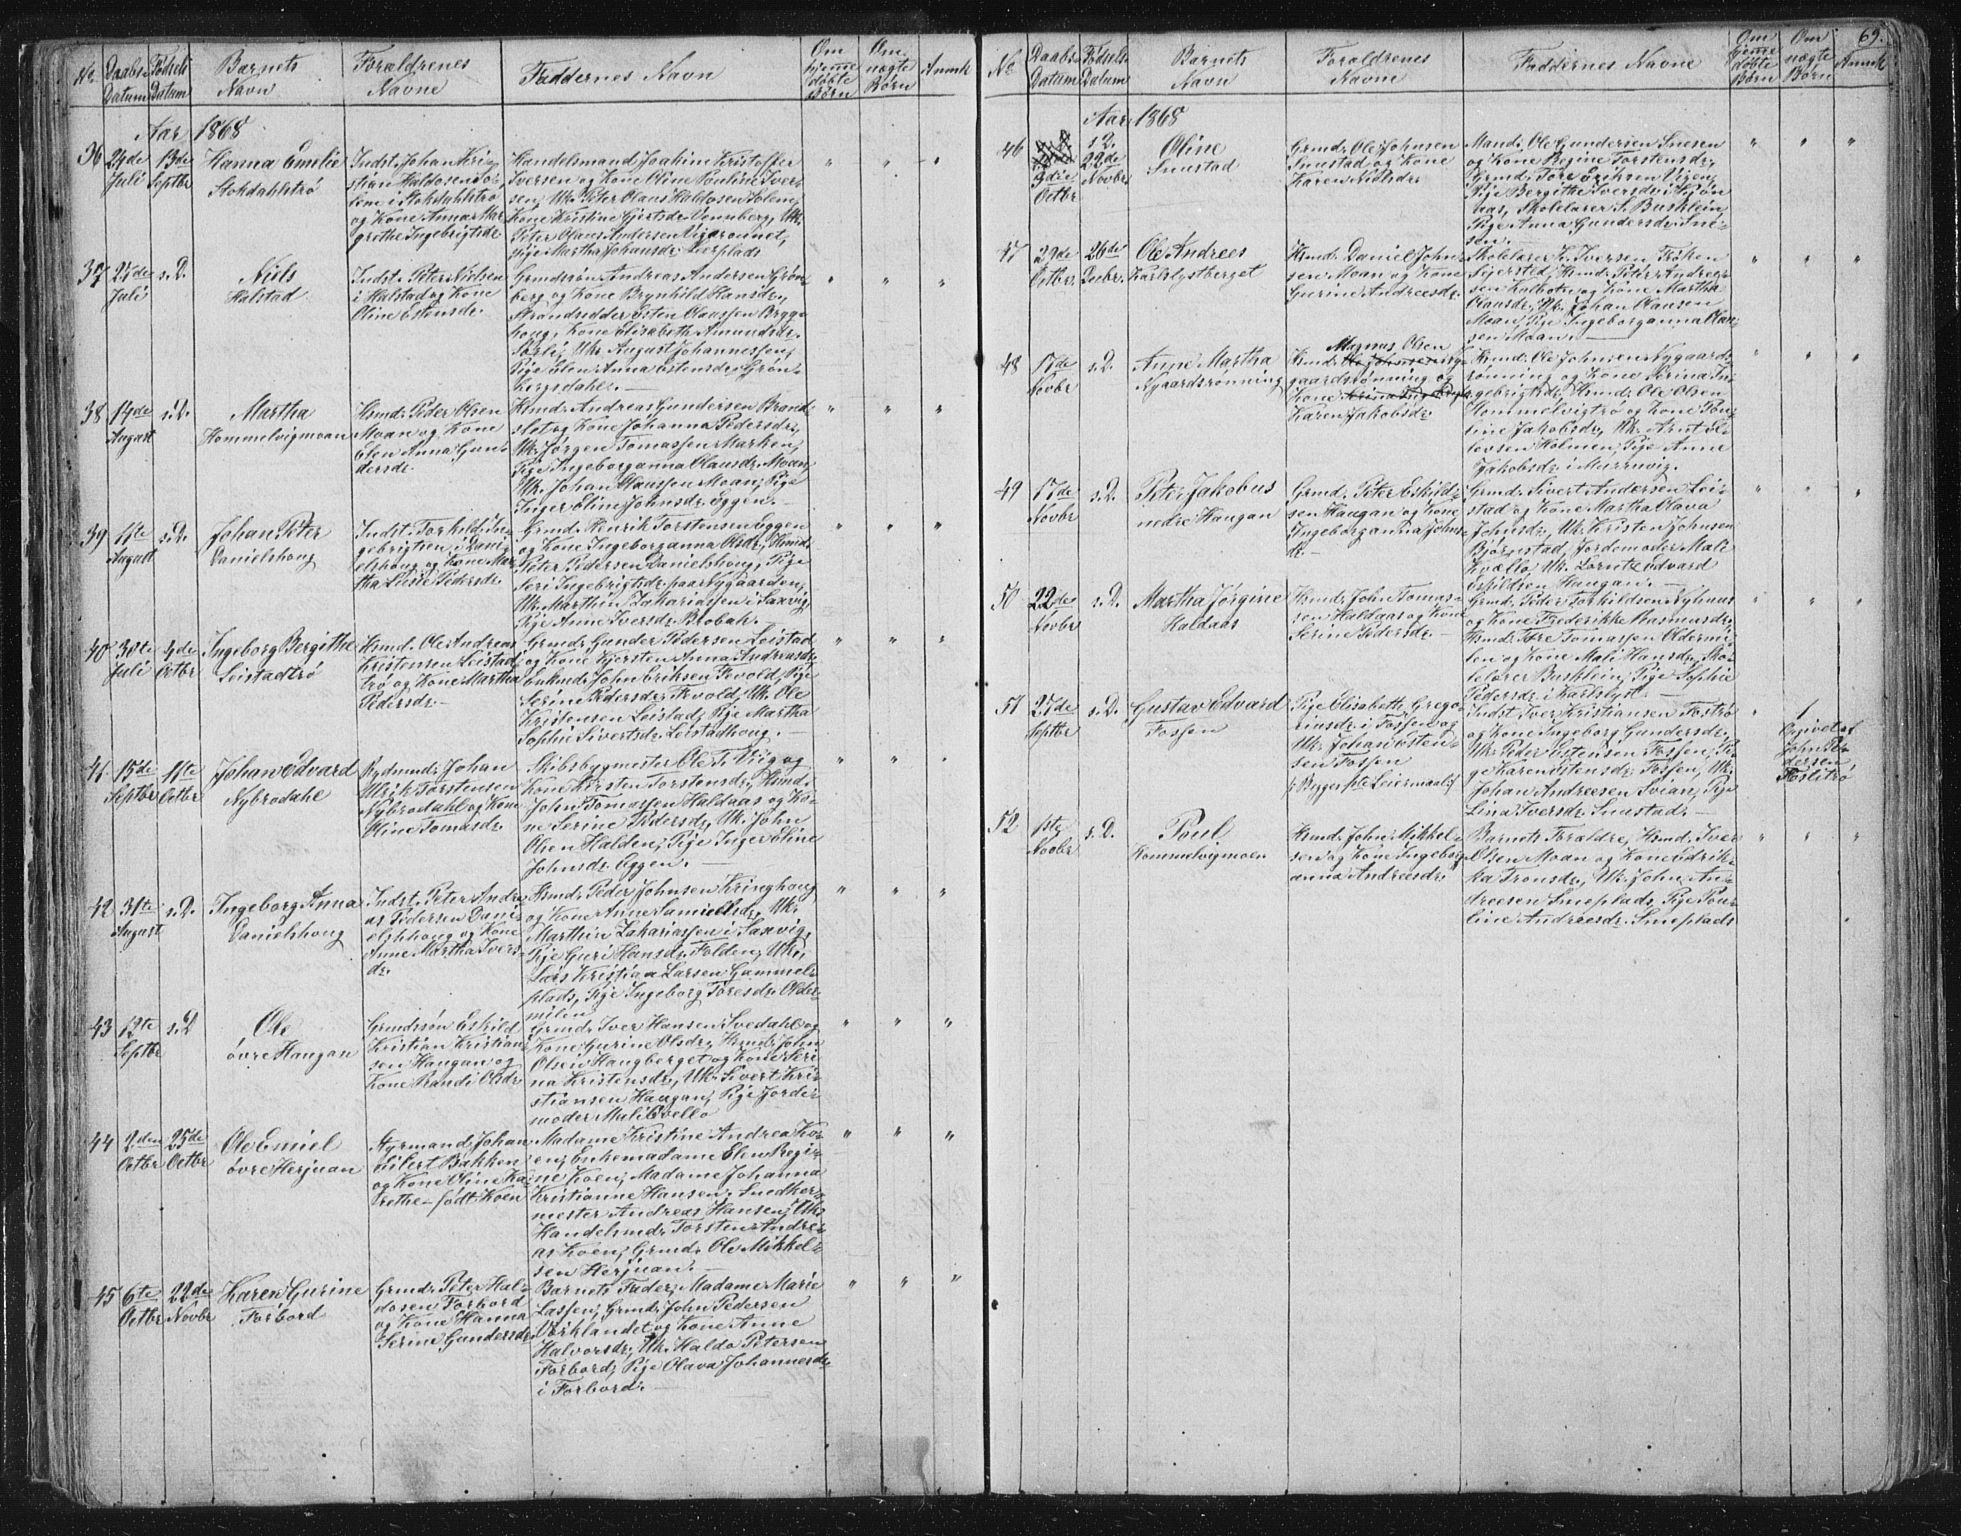 No Daabs Datum Fødsels Datum
Barnets Navn
Forældrenes Navne
Faddernes Navn
Om hjemme døbte Børn
Om uægte Børn
Anmk
Aar 1868
36 24de Juli 13de Septbr
Hanna Emelie
Stokdahlstrø
Indst. Johan Kri-
stian Haldosen So-
lem i Stokdahlstrø
og Kone Anna Mar
grethe Ingebrigtsdr
Handelsmand Joakim Kristoffer
Iversen og Kone Oline Pauline Iver-
sen, Uk. Peter Olaus Haldosen Solem,
Kone Kristine Gjertsdr Vennberg, Uk.
Peter Olaus Andersen
Pige Martha Johansdr
37 24de Juli s.D.
Niels
Halstad
Indst. Peter Nielsen
i Halstad og Kone
Oline Estensdr.
Grmdssøn Andreas Andersen Grøn-
berg og Kone Brynhild Hansdr.,
Strandsidder Esten Olaussen Brygg-
houg, Kone Elisabeth Amundsdr.
Uk. August Johannessen,
Pige Elen Anna Estensdr Grøn-
bergsdahl. —
38 14de August s.D.
Martha
Hommelvigmoan
Hsmd. Peder Olsen
Moan og Kone
Elen Anna Gun-
dersdr.
Hsmd. Andreas Gundersen Brand-
slet og Kone Johanna Pedersdr.,
Uk. Jørgen Tomassen Marken,
Pige Ingeborganna Olausdr. Moan,
Uk. Johan Olaussen Moan, Pige
Inger Eline Johnsdr. Eggen. —
39 11te August s.D.
Johan Peter
Danielshoug
Indst. Torkild In-
gebrigtsen i Dani-
elshoug og Kone Mar-
tha Lisie Pedersdr.
Grmd. Henrik Torstensen Eggen
og Kone Ingeborganna Olsdr., Hsmd.
Peter Pedersen Danielshoug, Pige
Seri Ingebrigtsdr. paa Nygaarden,
Uk. Marthin Zakariassen i Saxvig,
Pige Anne Iversdr. Blobak. —
40 30te Juli 4de Octbr
Ingeborg Bergitthe
Leistadtrø
Hsmd. Ole Andreas
Kristensen Leistad-
trø og Kone Martha
Pedersdr. —
Grmd. Gunder Pedersen Leistad
og Kone Kjersten Anna Andreasdr.,
Enkmd. John Eriksen Fevold, Pige
Serine Pedersdr. Fevold, Uk. Ole
Kristensen Leistad, Pige Martha
Sophie Sivertsdr. Leistadhoug. —
41 15de Septbr 11te Octbr
Johan Edvard
Nybrodahl
Rydnmd. Johan
Ulrik Torstensen
Nybrodahl og Kone
Oline Tomasdr.
Skibsbygmester Ole T. Viig og
Kone Kirsten Torstensdr., Hsmd.
John Tomassen Haldaas og Ko-
ne Serine Pedersdr., Uk. John
Olsen Halden, Pige Inger Eline
Johnsdr. Eggen. —
42 31te August s.D.
Ingeborg Anna
Danielshoug
Indst. Peter Andre-
as Pedersen Dani-
elshoug og Kone
Anne Martha Ivers-
dr.
Hsmd. Peder Johnsen Kringhoug
og Kone Anne Samuelsdr., Uk.
Marthin Zakariassen i Saxvig,
Pige Guri Hansdr. Folden, Uk.
Lars Kristian Larsen Gammel-
plads, Pige Ingeborg Toresdr. Older-
milen
43 12te Septbr s.D
Ole
øvre Haugan
Grmdssøn Eskild
Kristian Kristian-
sen Haugan og
Kone Randi Olsdr
Grmd. Iver Hansen Svedahl og
Kone Gurine Olsdr., Hsmd. John
Olsen Haugberget og Kone Seri-
na Kristensdr., Uk. Sivert Kri-
stiansen Haugan, Pige Jorde-
moder Mali Qvello
44 2den Octbr 25de Octbr
Ole Emiel
øvre Herjuan
Styrmand Johan
Eilert Bakken
og Kone Oline Ka-
trethe — født Koen
Madame Kristine Andrea Ko-
en, Enkemadame Elen Regi-
ne Koen, Madame Johanna
Kristianne Hansen, Snedker-
mester Andreas Hansen, Uk.
Handelsmd. Torsten Andre-
as Koen, Grmd. Ole Mikkel-
sen Herjuan. —
45 6te Octbr 22de Novbr
Karen Gurine
Forbord
Grmd. Peter Hal-
dosen Forbord
og Kone Hanna
Serine Gundersdr
Barnets Fader, Madame Marie
Lassen, Grmd. John Pedersen
Værklandet og Kone Anne
Halvorsdr., Uk. Haldo Petersen
Forbord, Pige Olava Johannesdr.
i Forbord. —
69.
No Daabs Datum Fødsels Datum
Barnets Navn
Forældrenes Navne
Faddernes Navne
Om hjemme døbte Børn
Om uægte Børn
Anmk
Aar 1868
46 Octbr 22de Novbr
Oline
Snustad
Grmd. Ole Johnsen
Snustad og Kone
Karen Nielsdr.
Mand. Ole Gundersen Snesen
og Kone Regine Torstensdr.,
Grmd. Tore Eriksen Vigen,
Pige Bergithe Iversdr.
Skolelærer S. Busklein,
Pige Anna Gundersdr. Sne-
sen. —
47 29de Octbr. 26de Decbr.
Ole Andrees
Karlslystberget
Hsmd. Daniel John-
sen Moan og Kone
Gurine Andreesdr.
Skolelærer K. Iversen, Frøken
Fjersted, Hsmd. Peter Andree-
sen Kalbotn og Kone Martha
Olausdr., Uk. Johan Olausen
Moan, Pige Ingeborganna Olau-
sen Moan. —
48 17de Novbr s.D.
Anne Martha
Nygaardsrønning
Magnus Olsen
Hsmd. Ole Johnsen Ny-
gaardsrønning og
Kone
Karen Jakobsdr.
Hsmd. Ole Johnsen Nygaards-
rønning og Kone Serina In-
gebrigtsdr., Hsmd. Ole Olsen
Hommelvigtrø og Kone Pau-
line Jakobsdr., Uk. Arnt Ol-
ersen Holmen, Pige Anne
Jakobsdr. i Muruvig. —
49 17de Novbr s.D.
Peter Jakobus
nedre Haugan
Grmd. Peter Eskild-
sen Haugan og Kone
Ingeborganna Johns-
dr. —
Grmd. Sivert Andersen Lei-
stad og Kone Martha Olava
Johnsdr., Uk. Kristen Johnsen
Bjørnstad, Jordemoder Mali
Kvello, Uk. Lorntz Edvard
Eskildsen Haugan. —
50 22de Novbr s.D.
Martha Jørgine
Haldaas
Hsmd. John Tomas-
sen Haldaas og Kone
Serine Pedersdr. —
Grmd. Peder Torkildsen Nyhuus
og Kone Frederikke Rasmusdr.,
Hsmd. Tore Tomassen Oldermi-
len og Kone Mali Hansdr., Sko-
lelærer Busklein, Pige Sophie
Pedersdr. i Karlslyst. —
51 27de Septbr s.D.
Gustav Edvard
Fossen
Pige Elisabeth Grego-
riusdr. i Fossen og
Uk. Johan Esten-
sen Fossen
Begges 1ste Leiermaal
Indst. Iver Kristiansen Fostrø
og Kone Ingeborg Gundersdr.,
Uk. Peder Estensen Fossen, Pi-
ge Karen Estensdr. Fossen, Uk.
Johan Andreesen Svian, Pige
Lina Iversdr. Snustad. —
1
Opgivet af
John Pe-
dersen
52 1ste Novbr s.D.
Poul
Hommelvigmoen
Hsmd. John Mikkel-
sen og Kone Ingeborg-
anna Andreesdr.
Barnets Forældre, Hsmd. Iver
Olsen Moan og Kone Edrik-
ka Tronsdr., Uk. John An-
dreesen Sneplads, Pige Pau-
line Andreesdr. Sneplads